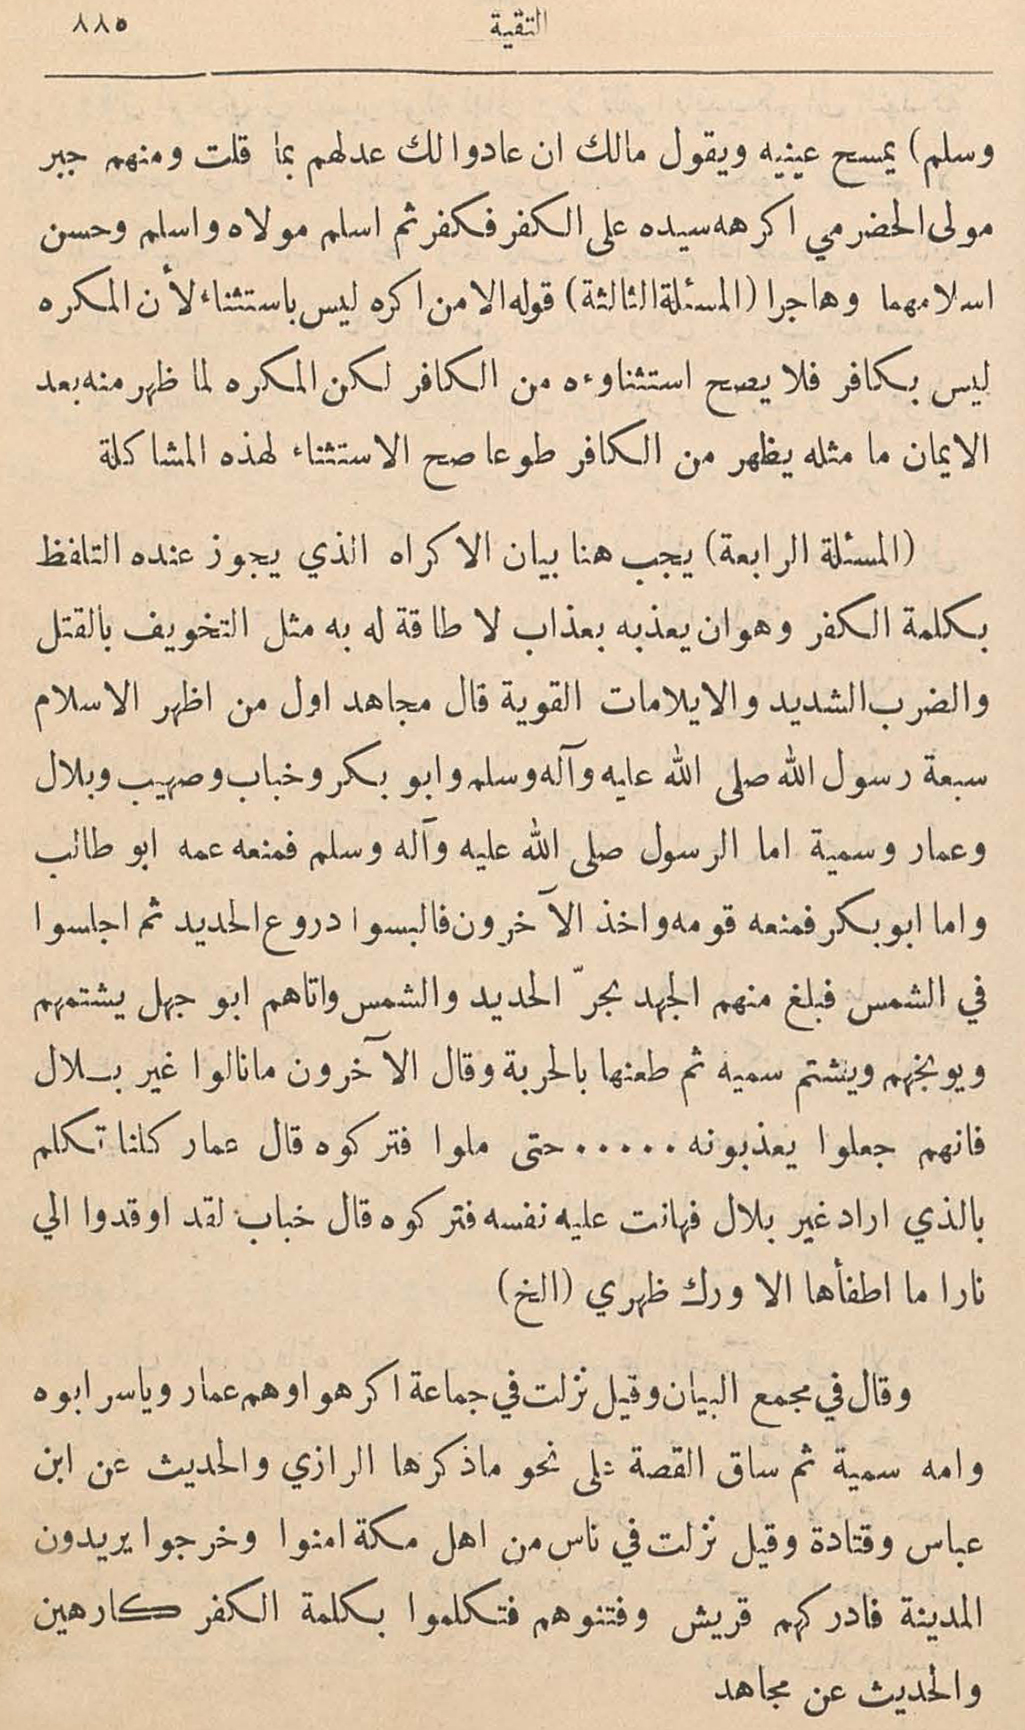 التقية
٨٨٥
وسلم) يمسح عينيه ويقول مالك ان عادوا لك عدلهم بما قلت ومنهم جبر
مولى الحضرمي اكرهه سيده على الكفر فكفر ثم اسلم مولاه واسلم وحسن
اسلامهما وهاجرا (المسئلة الثالثة) قوله الا من اكره ليس باستثناء لأن المكره
ليس بكافر فلا يصح استثناوءه من الكافر لكن المكره لما ظهر منه بعد
الايمان ما مثله يظهر من الكافر طوعا صح الاستثناء لهذه المشاكلة
(المسئلة الرابعة) يجب هنا بيان الاكراه الذي يجوز عنده التلفظ
بكلمة الكفر وهو ان يعذبه بعذاب لا طاقة له به مثل التخويف بالقتل
والضرب الشديد والايلامات القوية قال مجاهد اول من اظهر الاسلام
سبعة رسول الله صلى الله عليه وآله وسلم وابو بكر وخباب وصهيب وبلال
وعمار وسمية اما الرسول صلى الله عليه وآله وسلم فمنعه عمه ابو طالب
واما ابو بكر فمنعه قومه واخذ الآخرون فالبسوا دروع الحديد ثم اجلسوا
في الشمس فبلغ منهم الجهد بجرّ الحديد والشمس واتاهم ابو جهل يشتمهم
ويوبخهم ويشتم سميه ثم طعنها بالحربة وقال الآخرون ما نالوا غير بلال
فانهم جعلوا يعذبونه ..... حتى ملوا فتركوه قال عمار كلنا تكلم
بالذي اراد غير بلال فهانت عليه نفسه فتركوه قال خباب لقد اوقدوا الي
نارا ما اطفأها الا ورك ظهري (الخ)
وقال في مجمع البيان وقيل نزلت في جماعة اكرهوا وهم عمار وياسر ابوه
وامه سمية ثم ساق القصة على نحو ما ذكرها الرازي والحديث عن ابن
عباس وقتادة وقيل نزلت في ناس من اهل مكة امنوا وخرجوا يريدون
المدينة فادركهم قريش وفتنوهم فتكلموا بكلمة الكفر كارهين
والحديث عن مجاهد